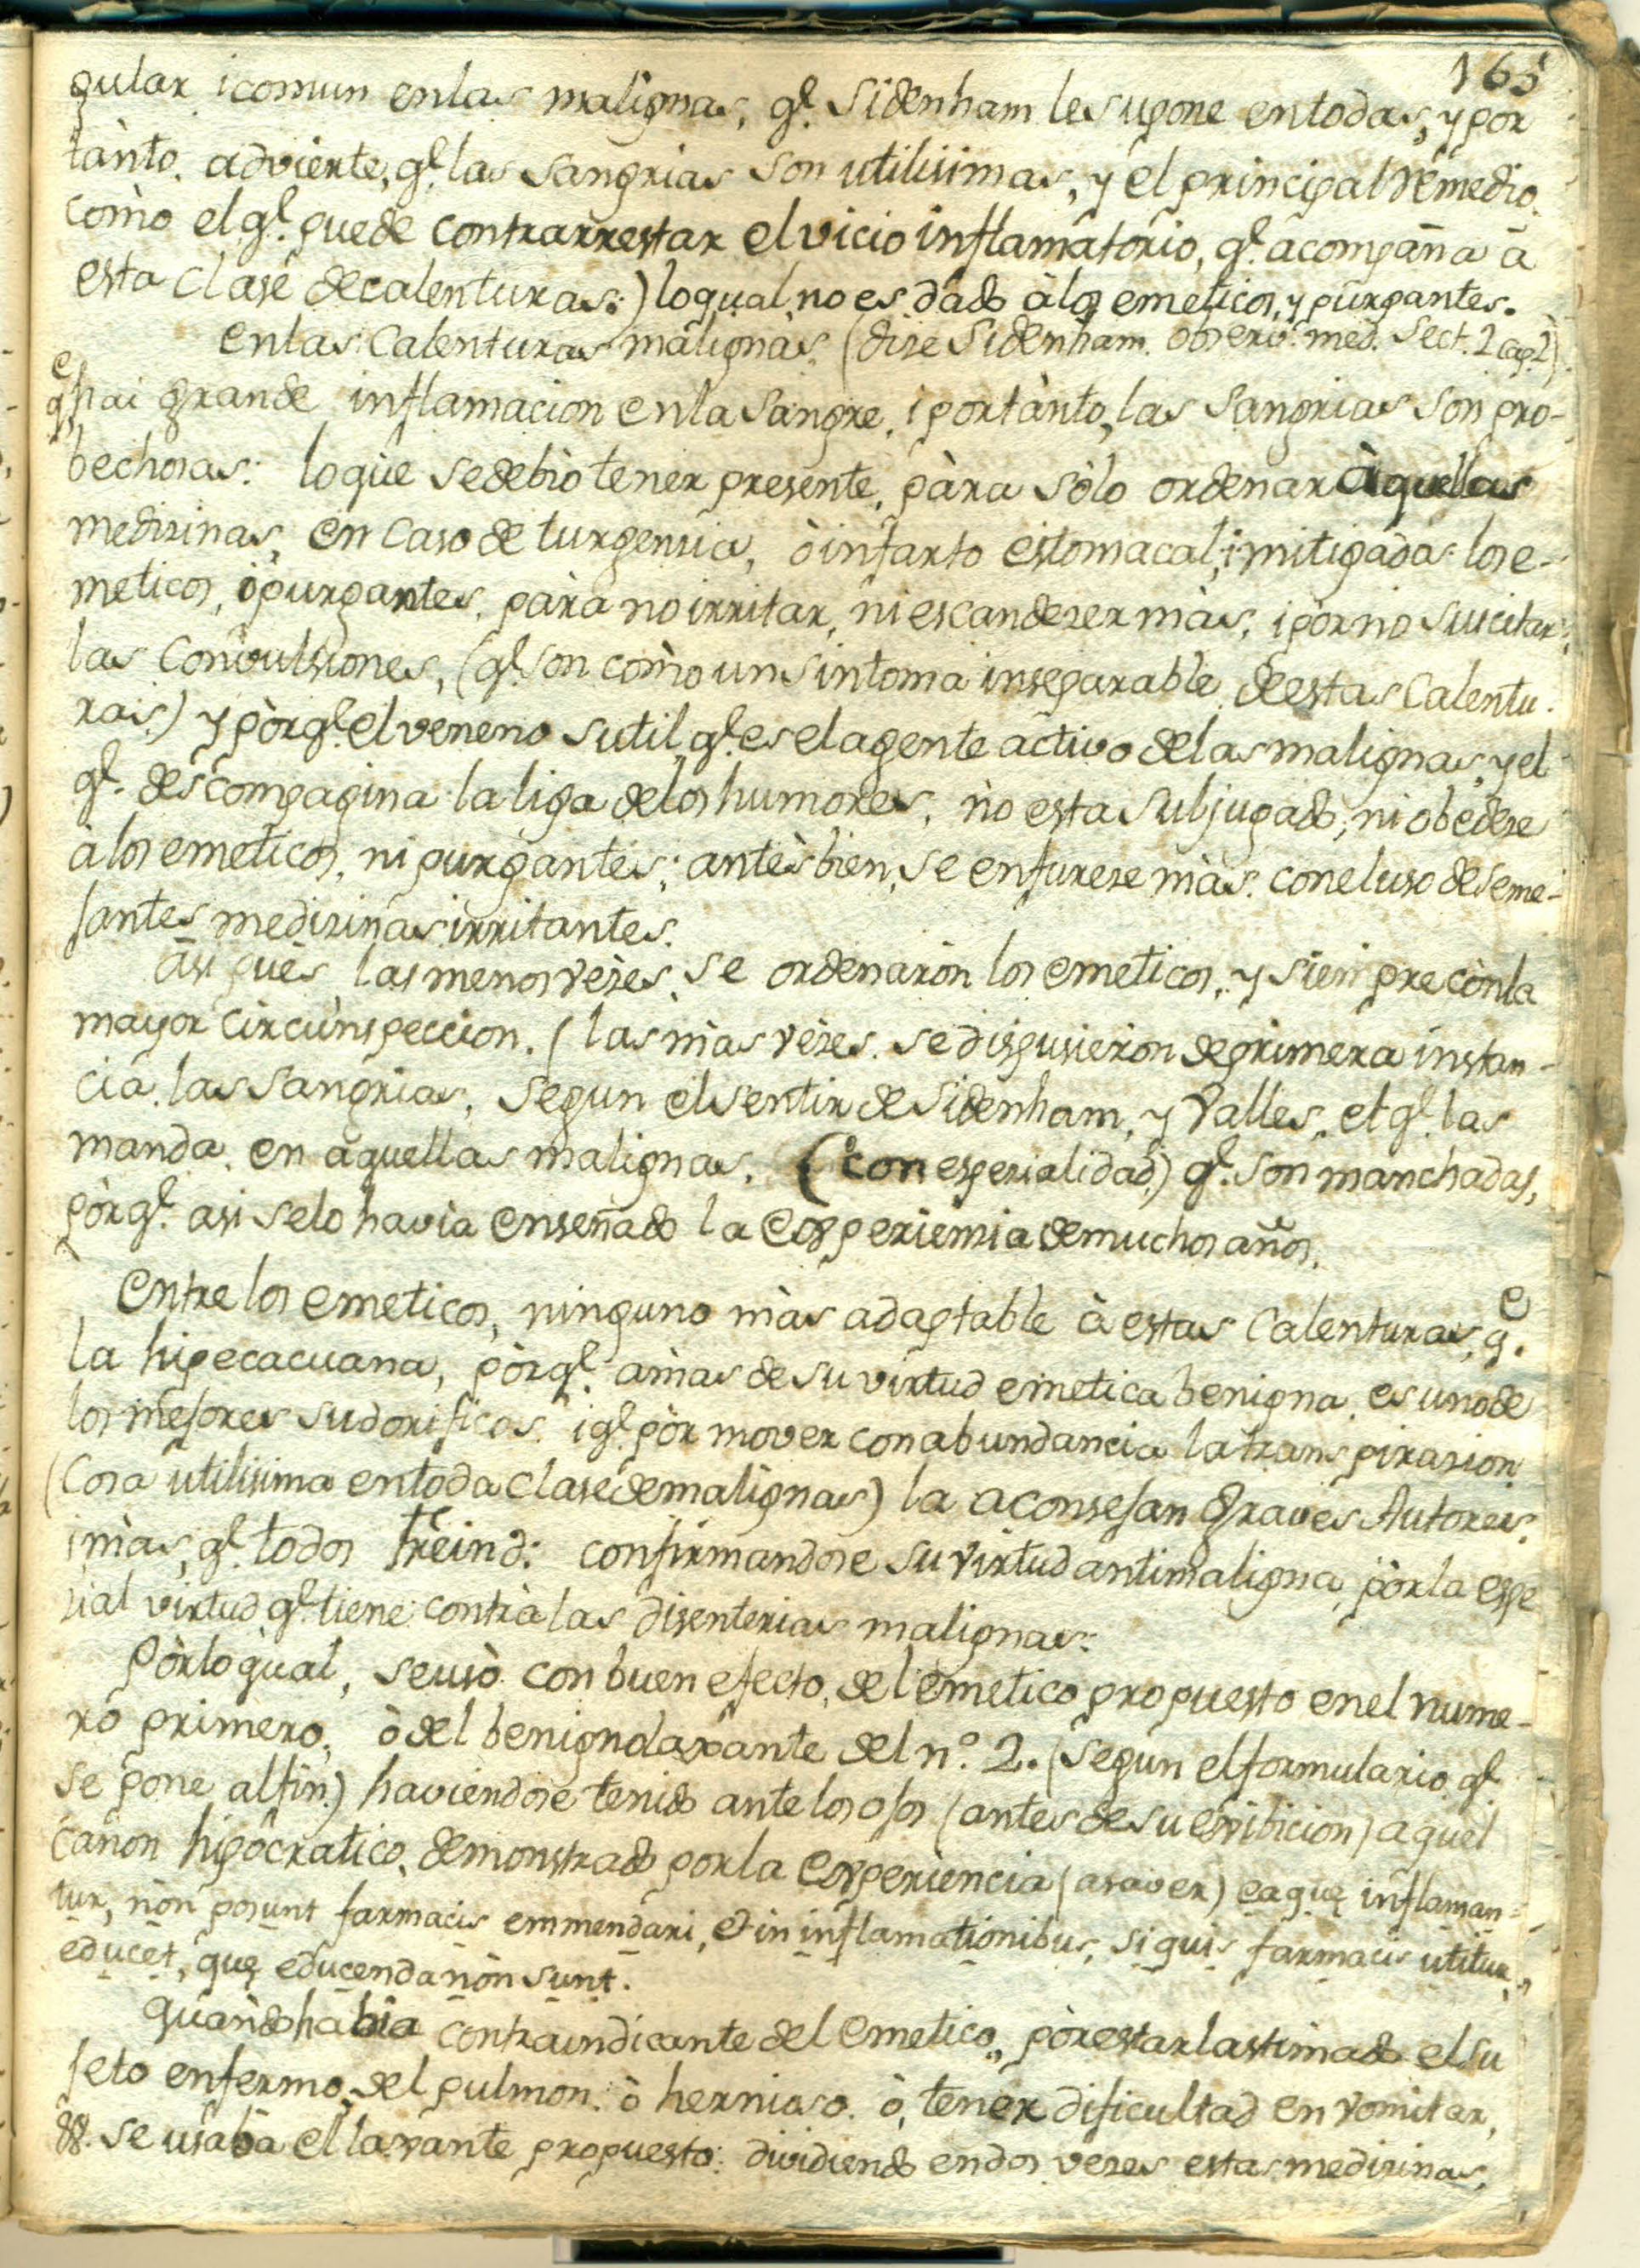 165
gular i comun en las malignas, q.e Sidenham le supone en todas, y por
tànto. advierte, q.e las sangrias son utilisimas, y el principal remedio.
como el q.e puede contrarrestar el vicio inflamatorio, q.e acompaña à
esta clase de calenturas:) lo qual no es dado à los emeticos, y purgantes.
en las Calenturas malignas (dize Sidenham. observ. med. Sect. 2 cap. 2)
q.e hai grande inflamacion en la sangre, i por tànto, las sangrias son pro-
bechosas: lo que se debiò tener presente, pàra sòlo ordenar àquellas
medizinas, en caso de turgenzia, ò infarto estomacal; i mitigada los e-
meticos, ò purgantes, pàra no irritar, ni escandezer màs, i pòr no suscitar
las convulsiones, (q.e son como un sintoma inseparable de estas calentu-
ras) y pòrq.e el veneno sutil, q.e es el agente activo de las malignas, y el
q.e descompagina la liga de los humores, no esta subjugado, ni obedeze
à los emeticos, ni purgantes; antes bien, se enfureze màs con el uso de seme-
jantes medizinas irritantes.
asi pues las menos vezes, se ordenaròn los emeticos, y siempre con la
mayor circunspeccion. (las màs vezes. se dispusieròn de primera instan-
cia. las sangrias, segun el sentir de Sidenham, y Valles, el q.e las
manda en aquellas malignas, (con espezialidad) q.e son manchadas,
pòrq.e asi se lo havia enseñado la experiemzia de muchos años.
Entre los emeticos, ninguno màs adaptable à estas Calenturas, q.e
la hipecacuana, pòrq.e amas de su virtud emetica benigna, es uno de
los mejores sudorificos. i q.e pòr mover con abundancia la transpirazion
(Cosa utilisima en toda clase de malignas) la aconsejan graves Autores,
i màs, q.e todos freind: confirmandose su virtud antimaligna, pòr la espe
zial virtud q.e tiene contra las disenterias malignas:
Pòr lo qual, se usò con buen efecto, del emetico propuesto en el nume-
ro primero, ò del benigno laxante del n.º 2. (segun el formulario q.e
se pone al fin.) haviendose tenido ante los ojos (antes de su exibicion) aquel
canon hipocratico, demonstrado por la experiencia (a saver) ea quę inflaman-
tur, non posunt farmacis emmendari, & in inflamationibus, si quis farmacis utitur,
educet, quę educenda non sunt.
quàndo habia contraindicante del emetico, pòr estar lastimado el su
jeto enfermo del pulmon. ò hernioso. ò, tener dificultad en vomitar,
&&. se usaba el laxante propuesto: dividiendo en dos vezes estas medizinas,